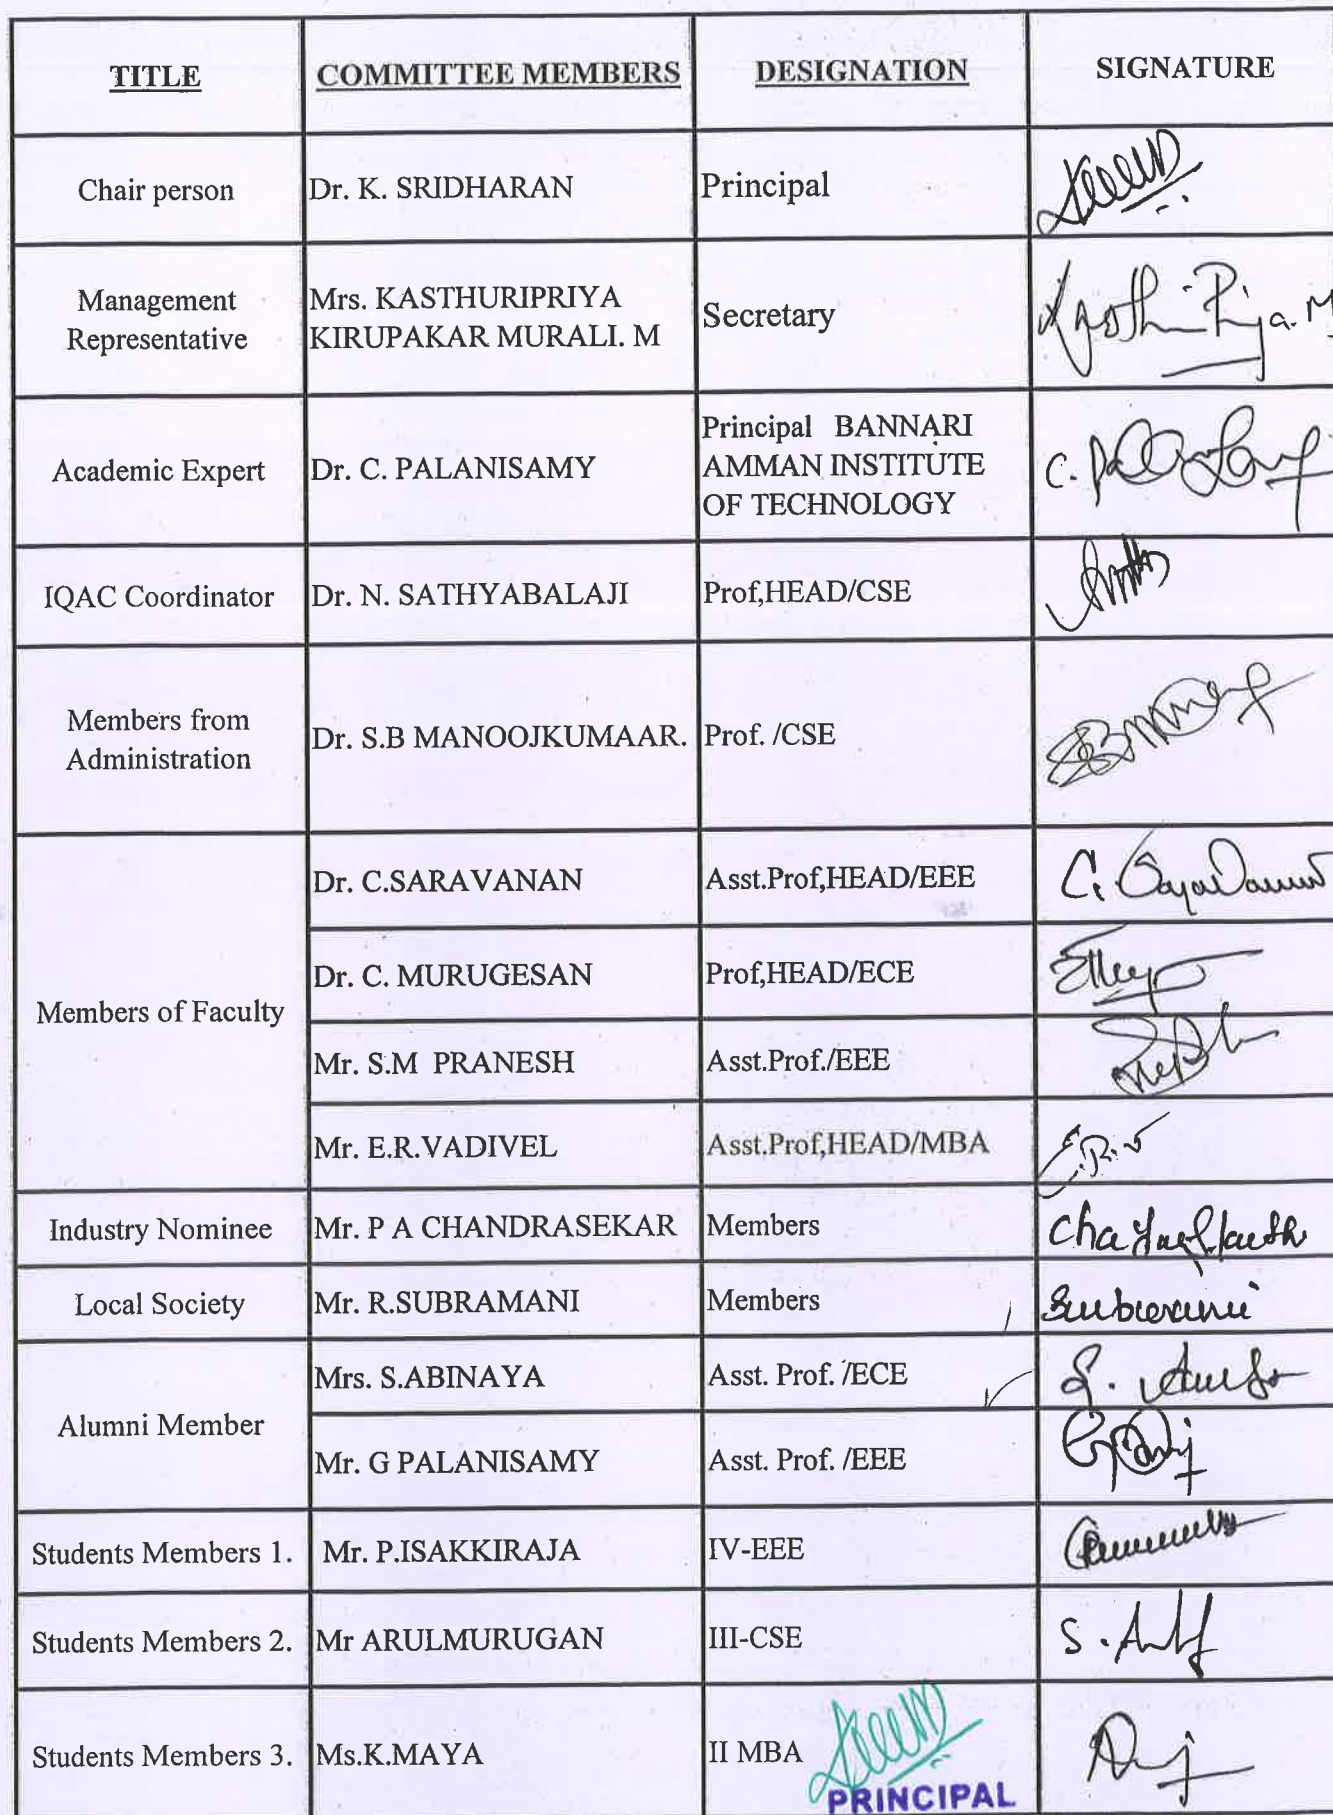 TITLE COMMITTEE MEMBERS DESIGNATION SIGNATURE
Chair person Dr. K. SRIDHARAN Principal
Management Representative Mrs. KASTHURIPRIYA KIRUPAKAR MURALI. M Secretary
Academic Expert Dr. C. PALANISAMY Principal BANNARI AMMAN INSTITUTE OF TECHNOLOGY
IQAC Coordinator Dr. N. SATHYABALAJI Prof,HEAD/CSE
Members from Administration Dr. S.B MANOOJKUMAAR. Prof. /CSE
Members of Faculty
Dr. C.SARAVANAN Asst.Prof,HEAD/EEE
Dr. C. MURUGESAN Prof,HEAD/ECE
Mr. S.M PRANESH Asst.Prof./EEE
Mr. E.R.VADIVEL Asst.Prof,HEAD/MBA E.R.V
Industry Nominee Mr. P A CHANDRASEKAR Members
Local Society Mr. R.SUBRAMANI Members
Alumni Member
Mrs. S.ABINAYA Asst. Prof. /ECE
Mr. G PALANISAMY Asst. Prof. /EEE
Students Members 1. Mr. P.ISAKKIRAJA IV-EEE
Students Members 2. Mr ARULMURUGAN III-CSE
Students Members 3. Ms.K.MAYA II MBA
PRINCIPAL